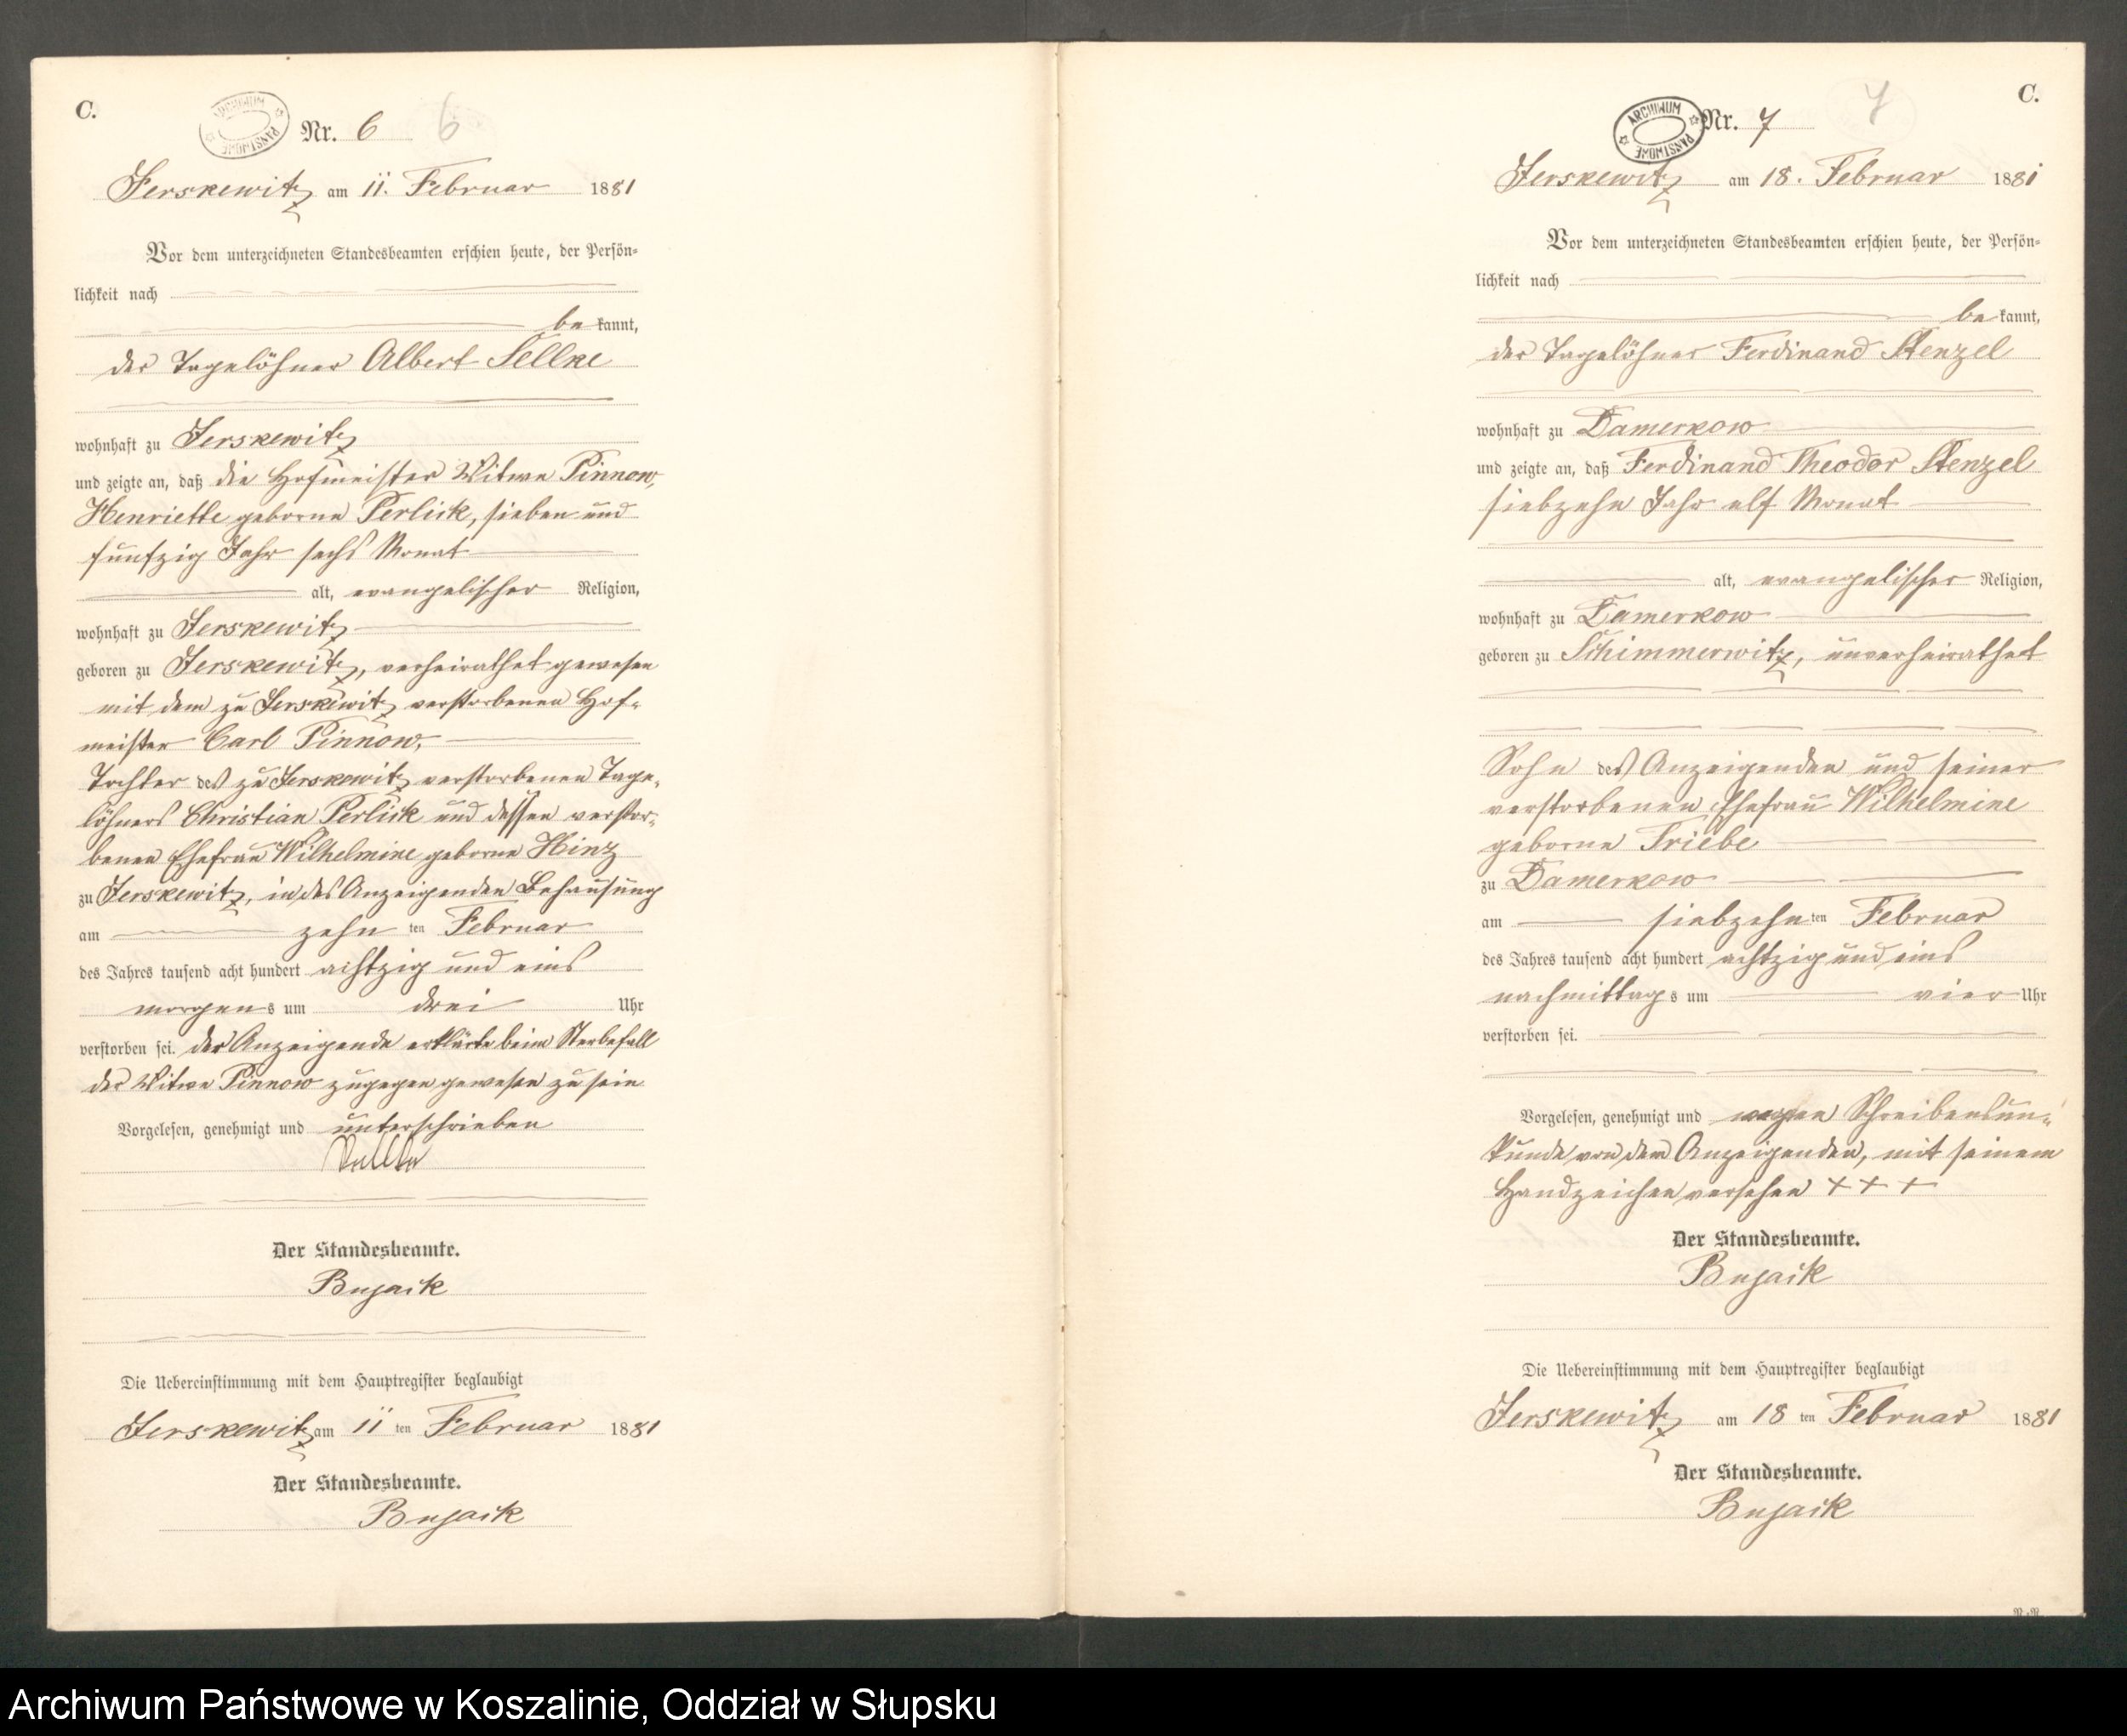 C.
ARCHIWUM PAŃSTWOWE
Nr. 6 6
Jerskewitz am 11. Februar 1881
Vor dem unterzeichneten Standesbeamten erschien heute, der Persön=
lichkeit nach
be kannt,
der Tagelöhner Albert Sellke
wohnhaft zu Jerskewitz
und zeigte an, daß die Hofmeister Witwe Pinnow,
Henriette geborne Perlick, sieben und
funfzig Jahr sechs Monat
alt, evangelischer Religion,
wohnhaft zu Jerskewitz
geboren zu Jerskewitz, verheirathet gewesen
mit dem zu Jerskewitz verstorbenen Hof=
meister Carl Pinnow,
Tochter des zu Jerskewitz verstorbenen Tage=
löhners Christian Perlick und dessen verstor=
benen Ehefrau Wilhelmine geborne Hinz
zu Jerskewitz, in des Anzeigenden Behausung
am zehn ten Februar
des Jahres tausend acht hundert achtzig und eins
morgens um drei Uhr
verstorben sei. der Anzeigende erklärte beim Sterbefall
der Witwe Pinnow zugegen gewesen zu sein
Vorgelesen, genehmigt und unterschrieben
Sellke
Der Standesbeamte.
Bujack
Die Uebereinstimmung mit dem Hauptregister beglaubigt
Jerskewitz am 11 ten Februar 1881
Der Standesbeamte.
Bujack
C.
ARCHIWUM PAŃSTWOWE
Nr. 7 7
Jerskewitz am 18. Februar 1881
Vor dem unterzeichneten Standesbeamten erschien heute, der Persön=
lichkeit nach
be kannt,
der Tagelöhner Ferdinand Stenzel
wohnhaft zu Damerkow
und zeigte an, daß Ferdinand Theodor Stenzel
siebzehn Jahr elf Monat
alt, evangelischer Religion,
wohnhaft zu Damerkow
geboren zu Schimmerwitz, unverheirathet
Sohn des Anzeigenden und seiner
verstorbenen Ehefrau Wilhelmine
geborne Triebe
zu Damerkow
am siebzehn ten Februar
des Jahres tausend acht hundert achtzig und eins
nachmittags um vier Uhr
verstorben sei.
Vorgelesen, genehmigt und wegen Schreibensun=
kunde von dem Anzeigenden, mit seinem
Handzeichen versehen + + +
Der Standesbeamte.
Bujack
Die Uebereinstimmung mit dem Hauptregister beglaubigt
Jerskewitz am 18 ten Februar 1881
Der Standesbeamte.
Bujack
Archiwum Państwowe w Koszalinie, Oddział w Słupsku